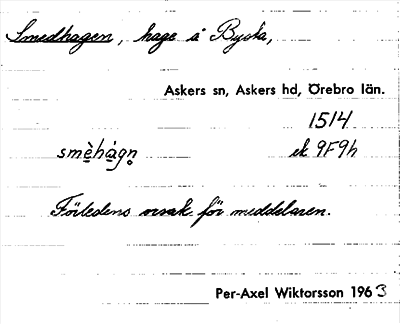 Smedhagen, hage å Bysta,
Askers sn, Askers hd, Örebro län.
1514
smèhágn̥ ek 9F9h
Förledens orsak för meddelaren.
Per-Axel Wiktorsson 1963